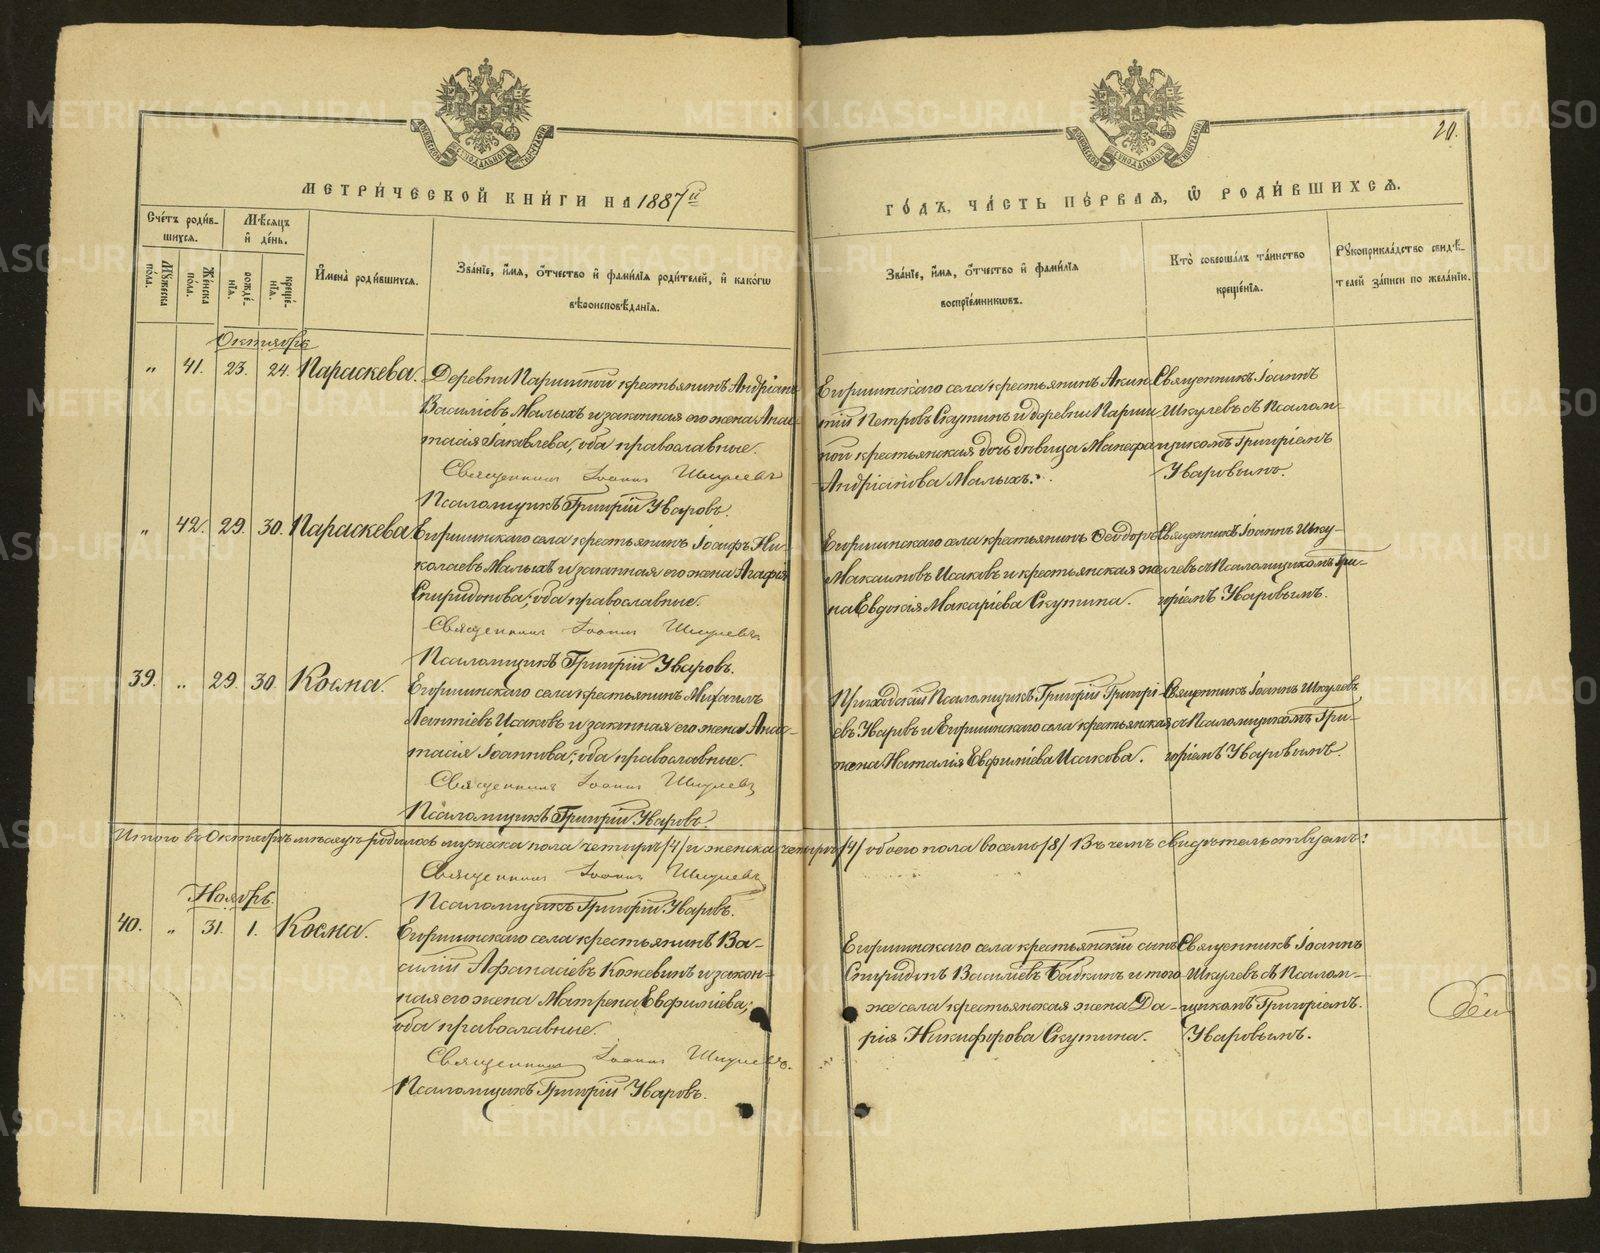 20.
МЕТРИ́ЧЕСКОЙ КНИ́ГИ НА 1887й
ГО́ДЪ, ЧА́СТЬ ПЕ́РВАЯ, Ѡ РОДИ́ВШИХСЯ.
Сче́тъ роди́в-
шихся.
Мѣсяцъ
и де́нь.
Му́жеска пола.
Же́нска пола.
рожде́-
нія.
креще́-
нія.
Имена̀ роди́вшихся.
Зва́ніе, и́мя, о́тчество и фами́лія роди́телей, и како́гѡ
вѣроисповѣ́данія.
Зва́ніе, и́мя, о́тчество и фами́лія
воспріе́мниковъ.
Кто̀ соверша́лъ та́инство
креще́нія.
Рукоприкла́дство свидѣ́-
телей за́писи по жела́нію.
Октябрь
„ 41. 23. 24. Параскева.
Деревни Паршиной крестьянинъ Андріанъ
Василіевъ Малыхъ и законная его жена Анас-
тасія Іаковлева, оба православные.
Священникъ Іоаннъ Шкулевъ
Псаломщикъ Григорій Уваровъ.
Егоршинскаго села крестьянинъ Акин-
тій Петровъ Скутинъ и деревни Парши-
ной крестьянская дочь дѣвица Манефа
Андріанова Малыхъ.
Священникъ Іоаннъ
Шкулевъ съ Псалом-
щикомъ Григоріемъ
Уваровымъ.
„ 42. 29. 30. Параскева
Егоршинскаго села крестьянинъ Іосифъ Ни-
колаевъ Малыхъ и законная его жена Агафія
Спиридонова; оба православные.
Священникъ Іоаннъ Шкулевъ
Псаломщикъ Григорій Уваровъ.
Егоршинскаго села крестьянинъ Ѳеодоръ
Максимовъ Исаковъ и крестьянская же-
на Евдокія Макаріева Скутина.
Священникъ Іоаннъ Шку-
левъ съ Псаломщикомъ Гри-
горіемъ Уваровымъ.
39. „ 29. 30. Косма.
Егоршинскаго села крестьянинъ Михаилъ
Леонтіевъ Исаковъ и законная его жена Анас-
тасія Іоаннова; оба православные.
Священникъ Іоаннъ Шкулевъ
Псаломщикъ Григорій Уваровъ.
Приходскій Псаломщикъ Григорій Григорі-
евъ Уваровъ и Егоршинскаго села крестьянская
жена Наталія Евфиміева Исакова.
Священникъ Іоаннъ Шкулевъ
съ Псаломщикомъ Гри-
горіемъ Уваровымъ
Итого въ Октябрѣ мѣсяцѣ родилось мужеска пола четыре /4/ и женска четыре /4/ обоего пола восемь /8/ Въ чемъ свидѣтельствуемъ:
Священникъ Іоаннъ Шкулевъ
Псаломщикъ Григорій Уваровъ.
Ноябрь.
40. „ 31. 1. Косма.
Егоршинскаго села крестьянинъ Ва-
силій Аѳанасіевъ Кожевинъ и закон-
ная его жена Матрена Евфиміева;
оба православные.
Священникъ Іоаннъ Шкулевъ.
Псаломщикъ Григорій Уваровъ.
Егоршинскаго села крестьянскій сынъ
Спиридонъ Василіевъ Бабкинъ и того-
же села крестьянская жена Да-
рія Никифорова Скутина.
Священникъ Іоаннъ
Шкулевъ съ Псалом-
щикомъ Григоріемъ
Уваровымъ.